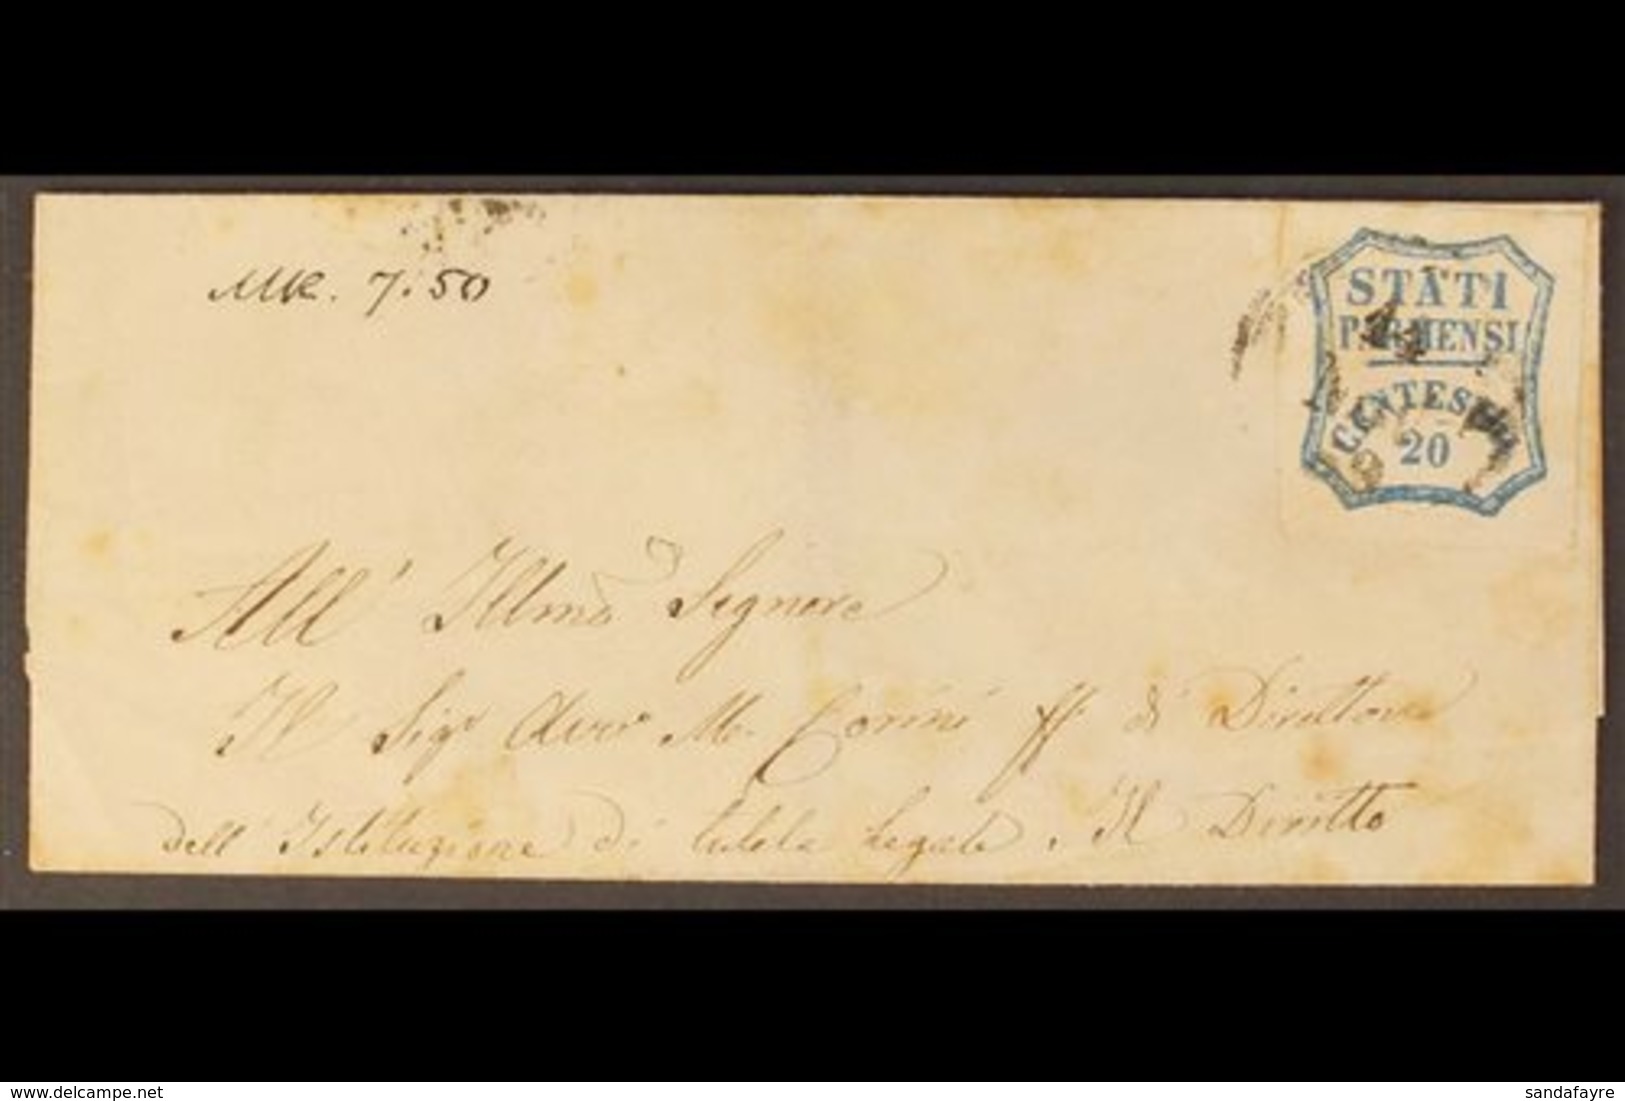 MR. 7.50
STATI
PARMENSI
CENTESIMI
20
All' Illmo Signore
Il Sigr Avvo M. Corini ff di Direttore
dell' Istituzione di tutela Legale. Il Diritto
sandafayre